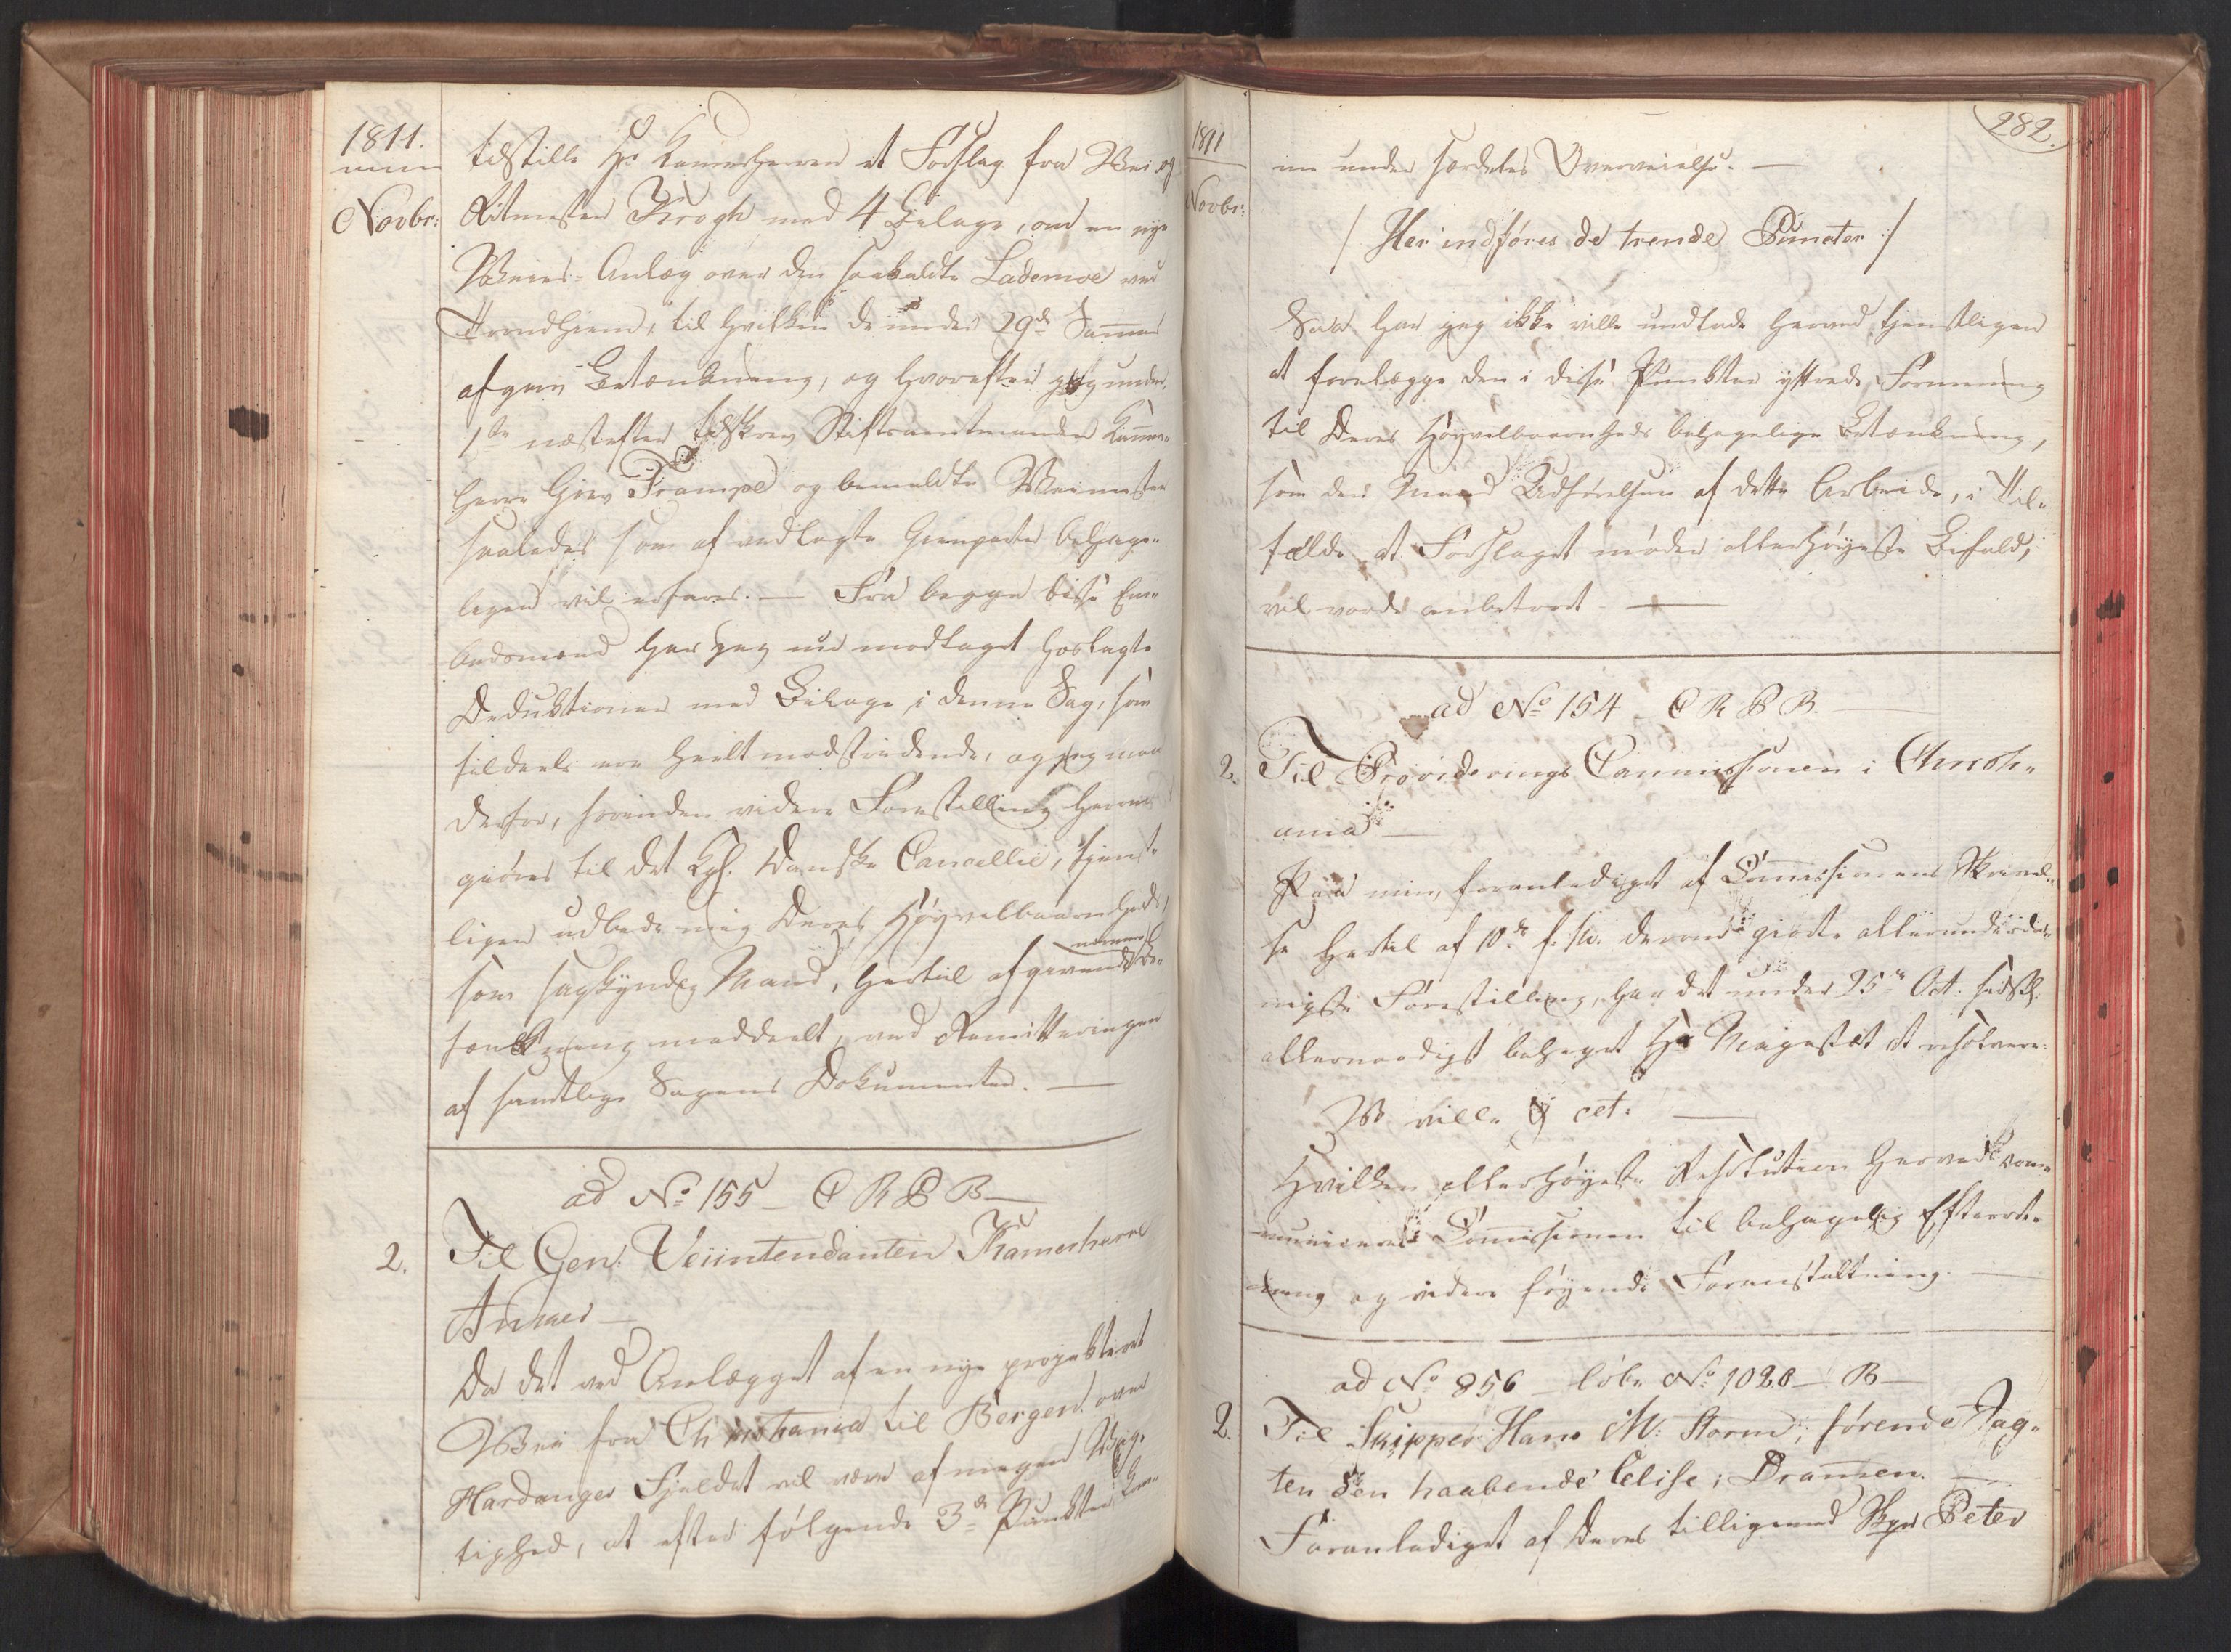 1811.
Novbr:
tilstille Hr Kammerherren et Forslag fra Vei og
Ritmester Krogh med 4 Bilage, om en nye
Veies-Anlæg over den saakaldte Lademoe ved
Trondhiem, til hvilken De under 29de
afgav Betænkning, og hvorefter jeg under
1ste næstefter tilskrev Stiftsamtmanden Kammer-
herre Grev Trampe og bemeldte Veimester
saaledes som af vedlagte Gienparter behage-
ligen vil erfares. — Fra begge disse Em-
bedsmænd har jeg nu modtaget hoslagte
Deduktioner med Bilage i denne Sag, som
tildeels ere heelt modstridende, og jeg maa
derfor, forinden videre Forestilling herom
giøres til det Kgl. Danske Cancellie, tjenst-
ligen udbede mig Deres Høyvelbaarenheds,
som sagkyndig Mand, hertil afgivende nærmere Be-
tænkning meddeelt, ved Remitteringen
af samtlige Sagens Dokumenter. —
ad No 155 — C R P B —
2. Til Gen: Veiintendanten Kamerherre
Anker —
Da det ved Anlægget af en nye projekteret
Vei fra Christiania til Bergen over
Hardanger Fjeldet vil være af megen Vig-
tighed, at efter følgende 3de Punkter
1811
Novbr:
282.
under særdeles Overveielse. —
/ Her indføres de trende Puncter /
Saa har jeg ikke ville undlade herved tjenstligen
at forelægge den i disse Punkter yttrede Formening
til Deres Høyvelbaarenheds behagelige Betænkning,
som den Mand Udførelsen af dette Arbeide, i Til-
fælde at Forslaget møder allerhøyeste Bifald,
vil vorde anbetroet — —
ad No 154 C R P B. —
2. Til Provideringscommissionen i Christi-
ania —
Paa min, foranlediget af Commissionens Skrivel-
se hertil af 10de f. M. derom giorte allerunderda-
nigste Forestilling, har det under 25de Oct: sidstl.
allernaadigst behaget Hs Majestæt at resolvere:
Vi ville cet: —
Hvilken allerhøyeste Resolution herved com-
municeres Commissionen til behagelig Efterret-
ning og videre føyende Foranstaltning. —
ad No 856 — løbe No 1020 — B —
2. Til Skipper Hans M: Storm, førende Jag-
ten den haabende Celise i Dramen. —
Foranlediget af Deres tilligemed Skpr Peter